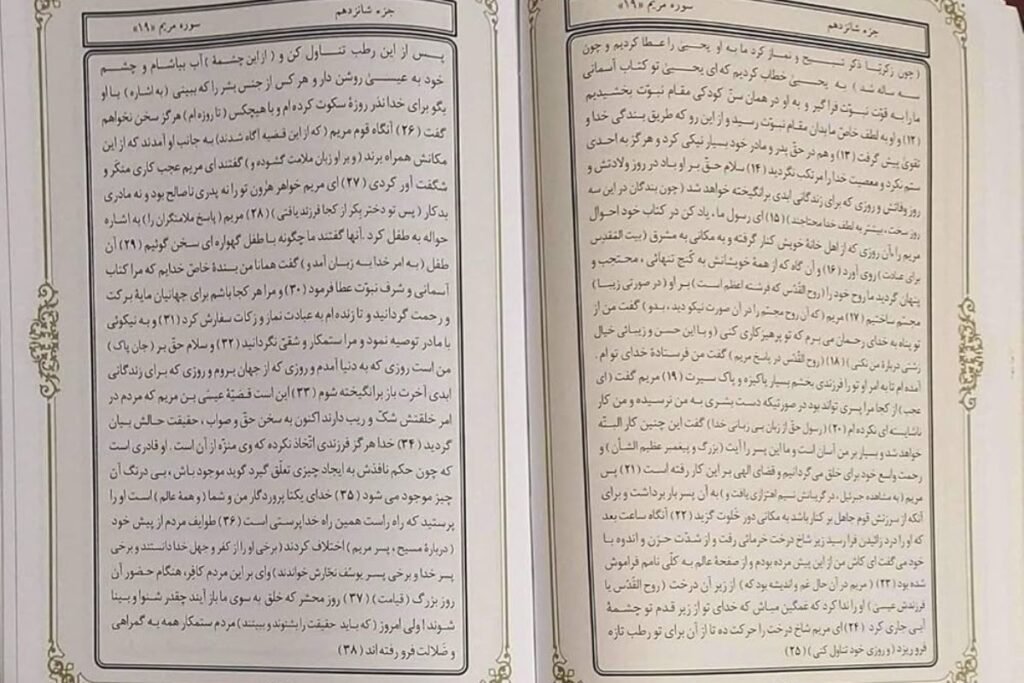 جزء شانزدهم
سوره مریم «۱۹»
( چون زکریّا ذکر تسبیح و نماز کرد ما به او یحییٰ را عطا کردیم و چون
سه ساله شد ) به یحییٰ خطاب کردیم که ای یحییٰ تو کتاب آسمانی
ما را به قوّت نبوّت فرا گیر و به او در همان سنّ کودکی مقام نبوّت بخشیدیم
(۱۲) و او به لطف خاصّ ما بدان مقام نبوّت رسید و از این رو که طریق بندگی خدا و
تقویٰ پیش گرفت (۱۳) و هم در حقّ پدر و مادر خود بسیار نیکی کرد و هرگز به احدی
ستم نکرد و معصیت خدا را مرتکب نگردید (۱۴) سلام حقّ بر او باد در روز ولادتش و
روز وفاتش و روزی که برای زندگانی ابدی برانگیخته خواهد شد (چون بندگان در این سه
روز سخت ، بیشتر به لطف خدا محتاجند ) (۱۵) ای رسول ما ، یاد کن در کتاب خود احوال
مریم را ، آن روزی که از اهل خانۀ خویش کنار گرفته و به مکانی به مشرق (بیت المَقدِس
برای عبادت) روی آورد (۱۶) و آن گاه که از همۀ خویشانش به کُنج تنهائی ، محتجب و
پنهان گردید ما روح خود را (روح القُدُس که فرشته اعظم است ) بر او (در صورتی زیبا )
مجسّم ساختیم (۱۷) مریم (که آن روح مجسّم را در آن صورت نیکو دید ، بدو ) گفت من از
تو پناه به خدای رحمان می برم که تو پرهیزکاری کنی (و با این حسن و زیبائی خیال
زشتی دربارۀ من نکنی ) (۱۸) (روح القُدُس در پاسخ مریم ) گفت من فرستادۀ خدای توام .
آمده ام تا به امر او تو را فرزندی بخشم بسیار پاکیزه و پاک سیرت (۱۹) مریم گفت (ای
عجب ) از کجا مرا پسری تواند بود در صورتیکه دست بشری به من نرسیده و من کار
ناشایسته ای نکرده ام (۲۰) (رسول حقّ از زبان بی زبانی خدا ) گفت این چنین کار البتّه
خواهد شد و بسیار بر من آسان است و ما این پسر را آیت (بزرگ و پیغمبر عظیم الشأن ) و
رحمت واسع خود برای خلق می گردانیم و قضای الهی بر این کار رفته است (۲۱) پس
مریم (به مشاهده جبرئیل ، در گریبانش نسیم اهتزازی یافت و ) به آن پسر بار برداشت و برای
آنکه از سرزنش قوم جاهل بر کنار باشد به مکانی دور خلوت گزید (۲۲) آنگاه ساعت بعد
که او را درد زائیدن فرا رسید زیر شاخ درخت خرمائی رفت و از شدّت حزن و اندوه با
خود می گفت ای کاش من از این پیش مرده بودم و از صفحۀ عالم به کلّی نامم فراموش
شده بود (۲۳) (مریم در آن حال غم و اندیشه بود که ) از زیر آن درخت (روح القُدُس یا
فرزندش عیسیٰ ) او را ندا کرد که غمگین مباش که خدای تو از زیر قدم تو چشمۀ
آبی جاری کرد (۲۴) ای مریم شاخ درخت را حرکت ده تا از آن برای تو رطب تازه
فرو ریزد (و روزی خود تناول کنی ) (۲۵)
جزء شانزدهم
سوره مریم «۱۹»
پس از این رطب تناول کن و ( از این چشمۀ ) آب بیاشام و چشم
خود به عیسیٰ روشن دار و هر کس از جنس بشر را که ببینی (به اشاره ) با او
بگو برای خدا نذر روزۀ سکوت کرده ام و با هیچکس (تا روزه ام) هرگز سخن نخواهم
گفت (۲۶) آنگاه قوم مریم (که از این قضیه آگاه شدند) به جانب او آمدند که از این
مکانش همراه برند (و بر او زبان ملامت گشوده و ) گفتند ای مریم عجب کاری منکَر و
شگفت آور کردی (۲۷) ای مریم خواهر هٰرون تو را نه پدری ناصالح بود و نه مادری
بدکار ( پس تو دختر بِکر از کجا فرزند یافتی ) (۲۸) مریم (پاسخ ملامتگران را ) به اشاره
حواله به طفل کرد .آنها گفتند ما چگونه با طفل گهواره ای سخن گوئیم (۲۹) آن
طفل ( به امر خدا به زبان آمد و ) گفت همانا من بندۀ خاصّ خدایم که مرا کتاب
آسمانی و شرف نبوّت عطا فرمود (۳۰) و مرا هر کجا باشم برای جهانیان مایۀ برکت
و رحمت گردانید و تا زنده ام به عبادت نماز و زکات سفارش کرد (۳۱) و به نیکوئی
با مادر توصیه نمود و مرا ستمکار و شقیّ نگردانید (۳۲) و سلام حقّ بر (جان پاک )
من است روزی که به دنیا آمدم و روزی که از جهان بروم و روزی که برای زندگانی
ابدی آخرت باز برانگیخته شوم (۳۳) این است قضیّۀ عیسیٰ بن مریم که مردم در
امر خلقتش شکّ و ریب دارند اکنون به سخن حقّ و صواب ، حقیقت حالش بیان
گردید (۳۴) خدا هرگز فرزندی اتّخاذ نکرده که وی منزّه از آن است . او قادری است
که چون حکم نافذش به ایجاد چیزی تعلّق گیرد گوید موجود باش ، بی درنگ آن
چیز موجود می شود (۳۵) خدای یکتا پروردگار من و شما ( و همۀ عالم ) است او را
پرستید که راه راست همین راه خداپرستی است (۳۶) طوایف مردم از پیش خود
(دربارۀ مسیح ، پسر مریم ) اختلاف کردند (برخی او را از کفر و جهل خدا دانستند و برخی
پسر خدا و برخی پسر یوسُف نجّارش خواندند ) وای بر این مردم کافِر، هنگام حضور آن
روز بزرگ (قیامت ) (۳۷) روز محشر که خلق به سوی ما باز آیند چقدر شنوا و بینا
شوند ! ولی امروز (که باید حقیقت را بشنوند و ببینند ) مردم ستمکار همه به گمراهی
و ضَلالت فرو رفته اند (۳۸)